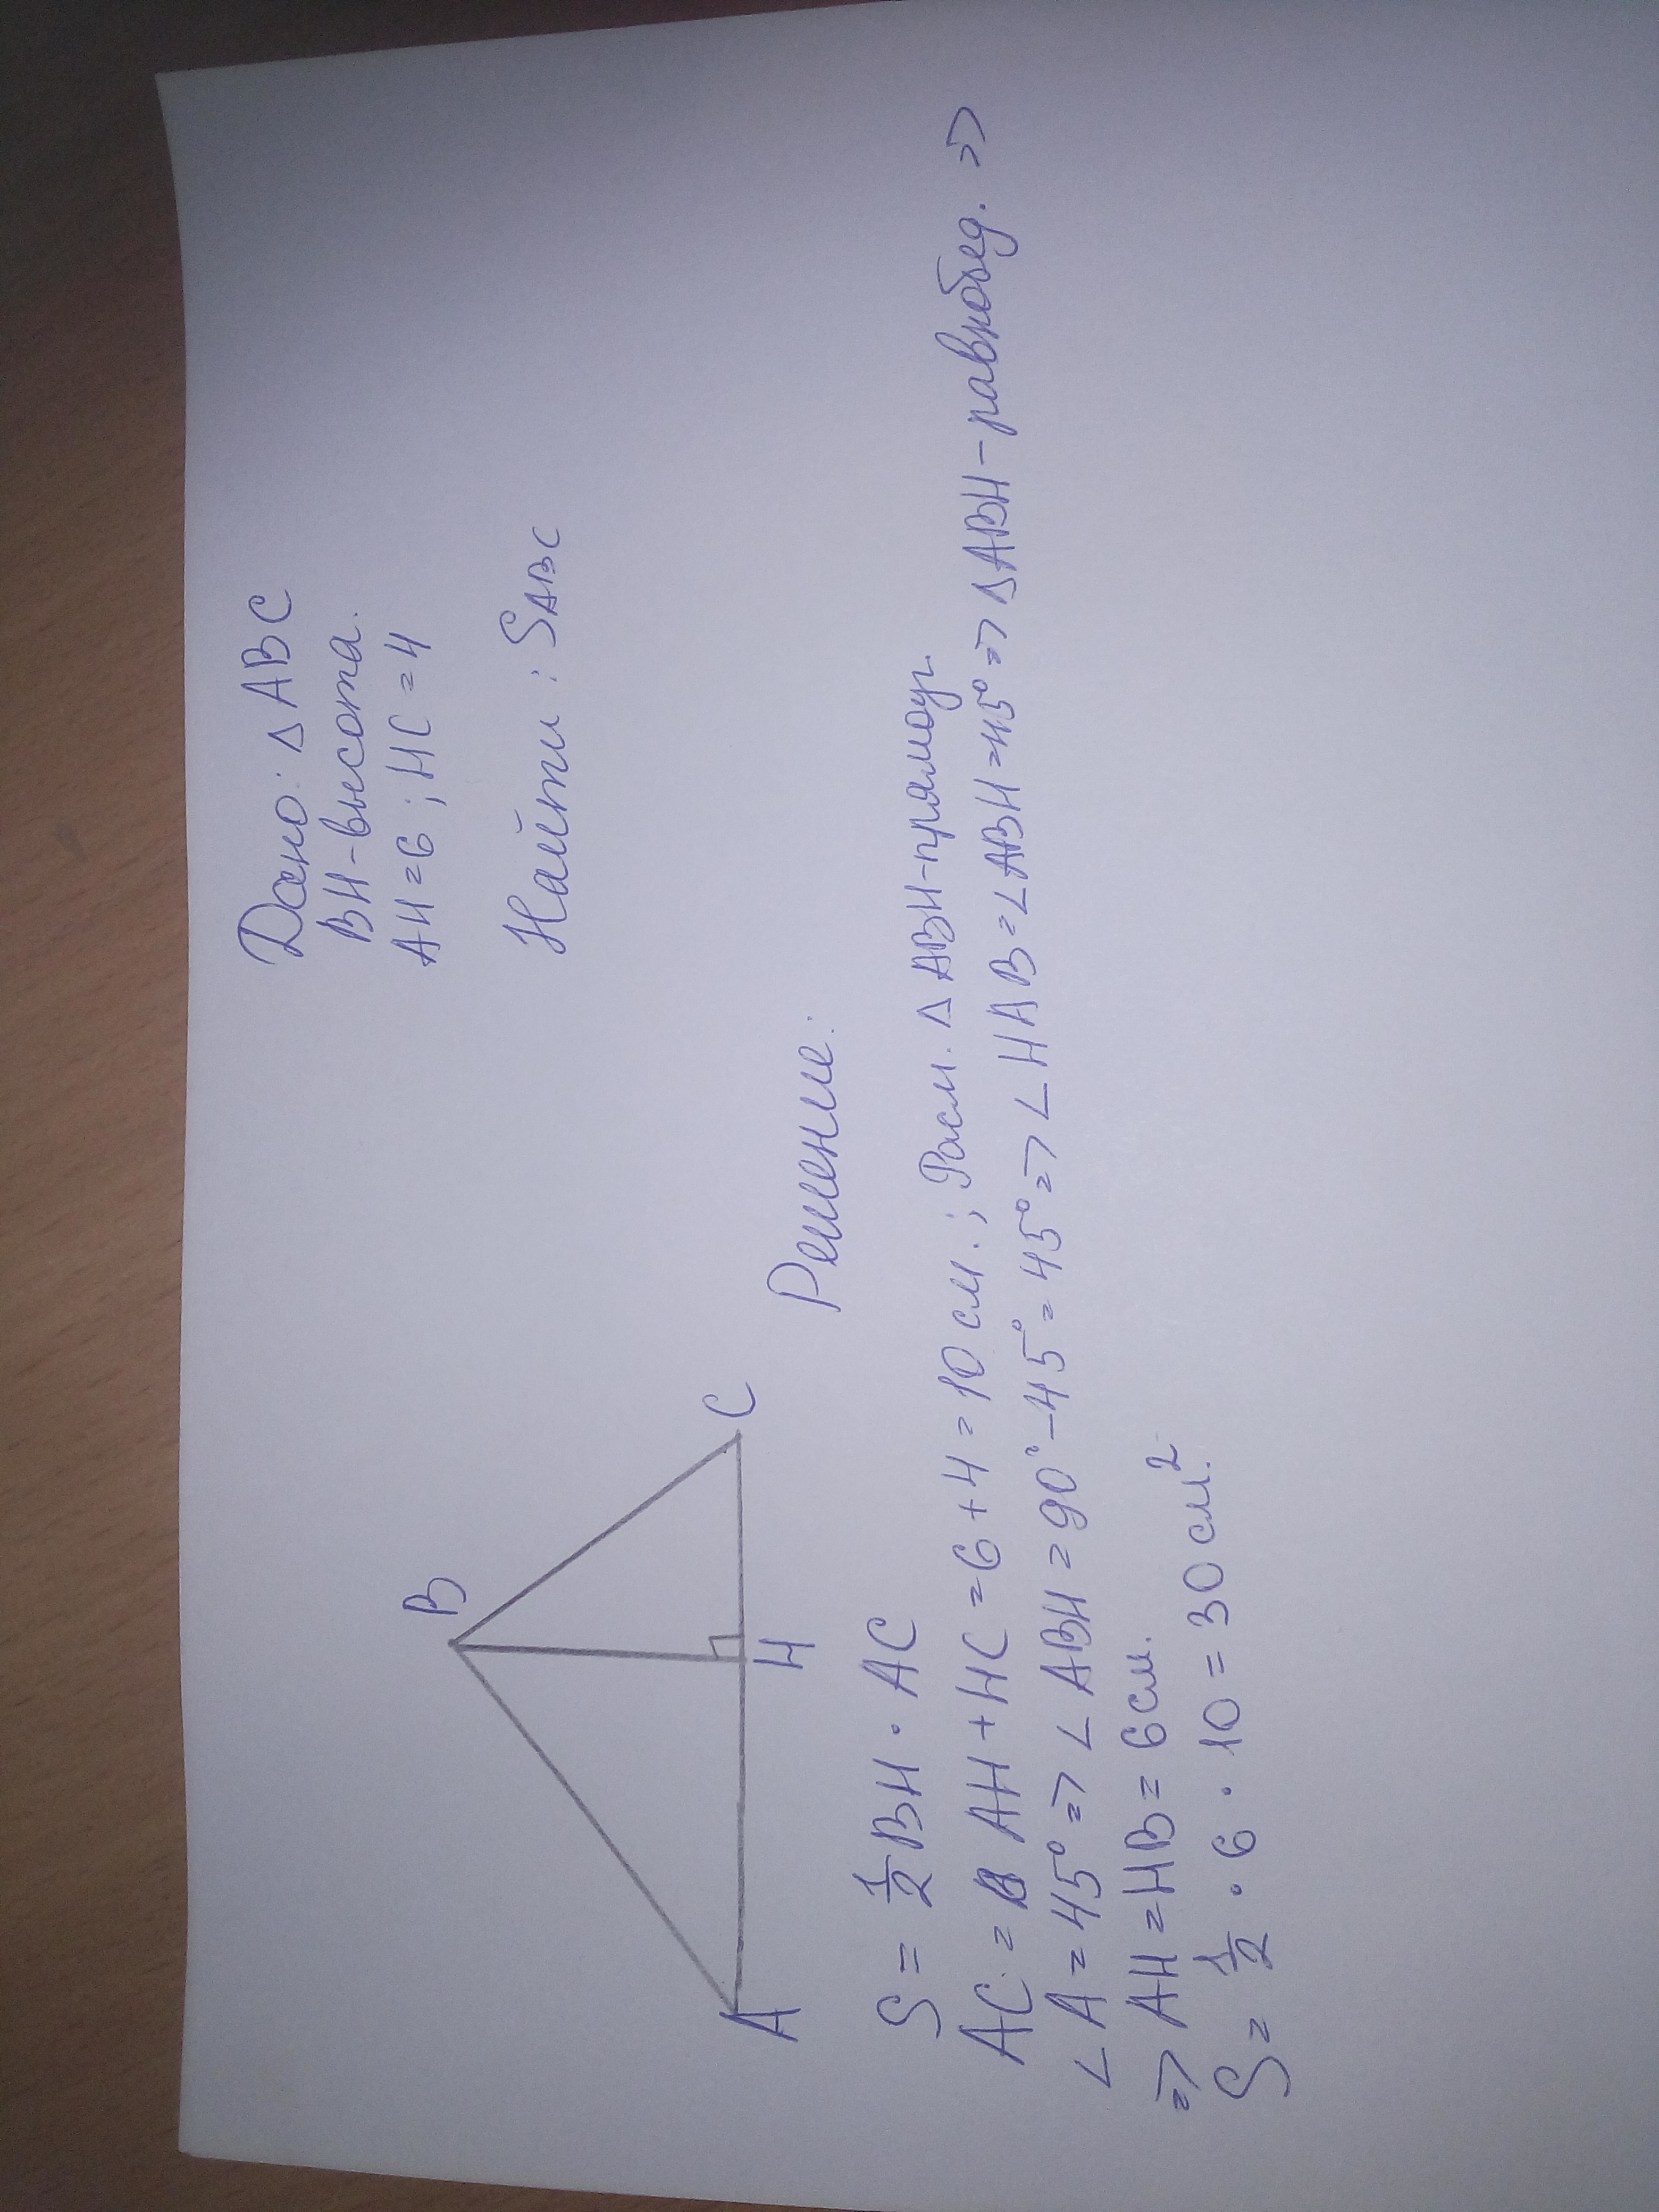 Дано: Δ ABC
BH - высота.
AH = 6 ; HC = 4
Найти : SABC
B
A
H
C
Решение:
S = 1/2 BH · AC
AC = AH + HC = 6 + 4 = 10 см. ; Расм. Δ ABH - прямоуг.
∠ A = 45° => ∠ ABH = 90° - 45° = 45° => ∠ HAB = ∠ ABH = 45° => Δ ABH - равнобед. =>
=> AH = HB = 6 см.
S = 1/2 · 6 · 10 = 30 см.²